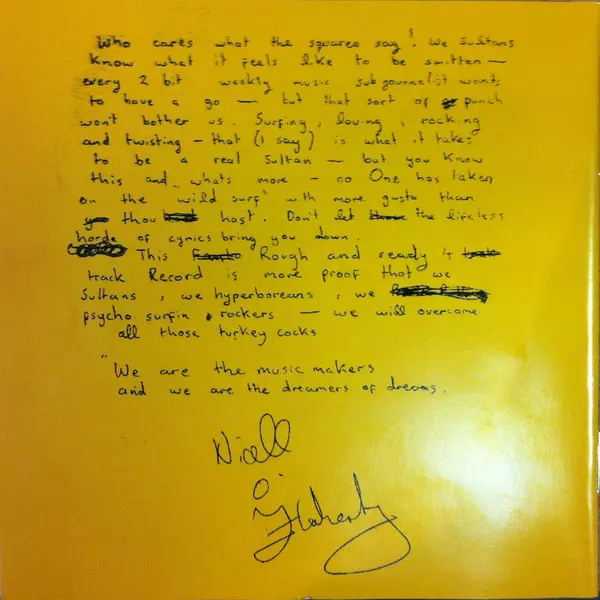 Who cares what the squares say! We Sultans
know what it feels like to be smitten —
every 2 bit weekly music subjournalist wants
to have a go — but that sort of punch
won't bother us. Surfing, loving, rocking
and twisting – that (I say) is what it takes
to be a real Sultan — but you know
this and, whats more – no One has taken
on the wild surf with more gusto than
thou hast. Don't let the lifeless
horde of cynics bring you down.
This Rough and ready 4
track Record is more proof that we
Sultans, we hyperboreans, we
psycho surfin rockers — we will overcome
all those turkey cocks
"We are the music makers
and we are the dreamers of dreams.
Niall
O'
Flaherty